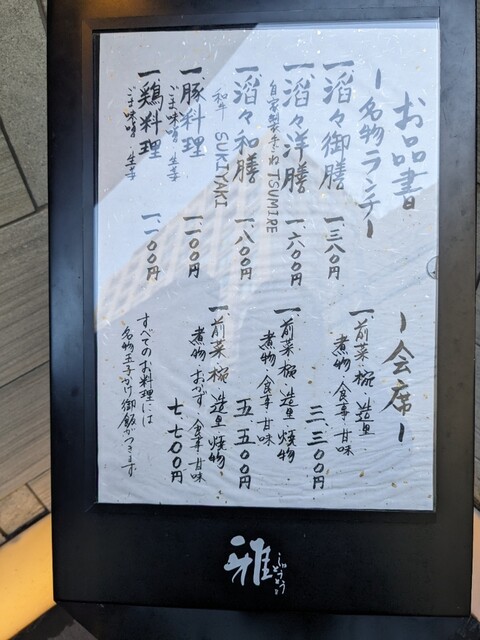 お品書
ー名物ランチー
一、滔々御膳 一、三八〇円
一、滔々洋膳 一、六〇〇円
自家製手ごね TSUMIRE
一、滔々和膳 一、八〇〇円
和牛 SUKIYAKI
一、豚料理 一、一〇〇円
ごま味噌 生姜
一、鶏料理 一、一〇〇円
ごま味噌 生姜
ー会席ー
一、前菜・椀・造里・
煮物・食事・甘味
三、三〇〇円
一、前菜・椀・造里・焼物・
煮物・食事・甘味
五、五〇〇円
一、前菜・椀・造里・焼物・
煮物・おかず・食事・甘味
七、七〇〇円
すべてのお料理には
名物玉子かけ御飯がつきます
雅